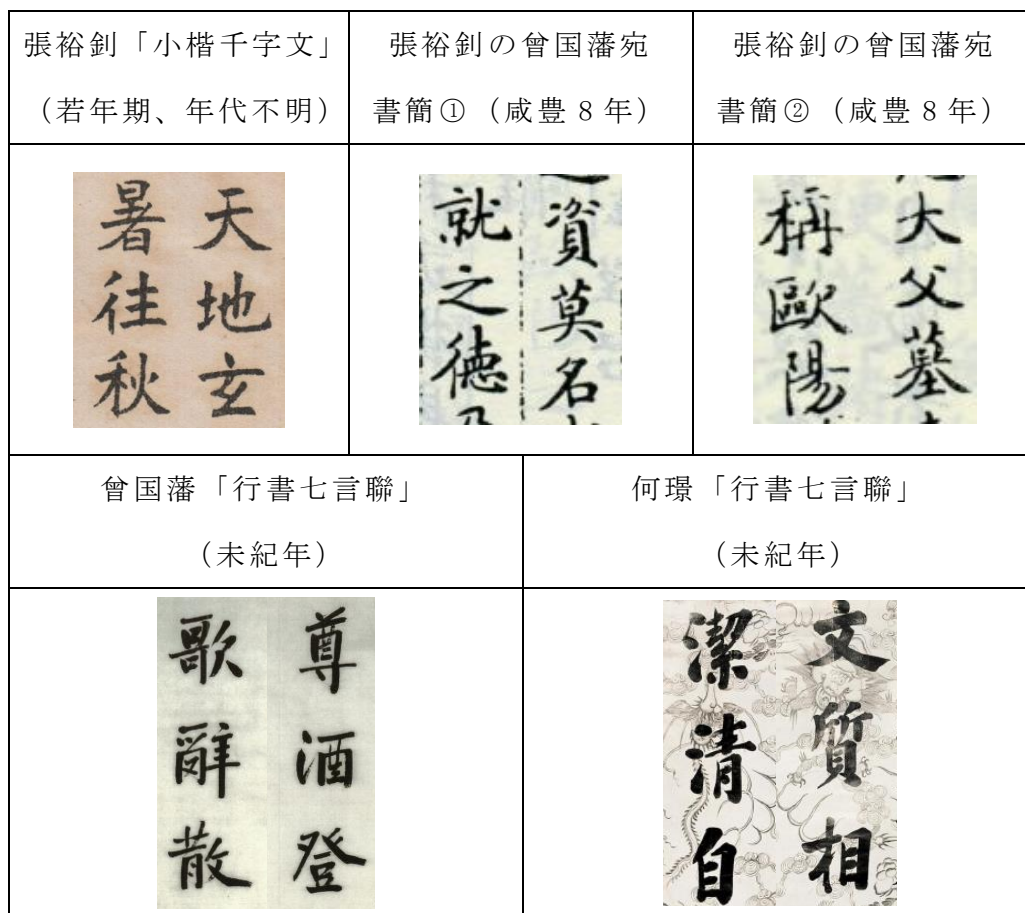 張裕釗「小楷千字文」
（若年期、年代不明）
張裕釗の曾国藩宛
書簡①（咸豊８年）
張裕釗の曾国藩宛
書簡②（咸豊８年）
天地玄
暑往秋
資莫名
就之德
大父墓
稱歐陽
曾国藩「行書七言聯」
（未紀年）
何璟「行書七言聯」
（未紀年）
尊酒登
歌辭散
文質相
潔清自